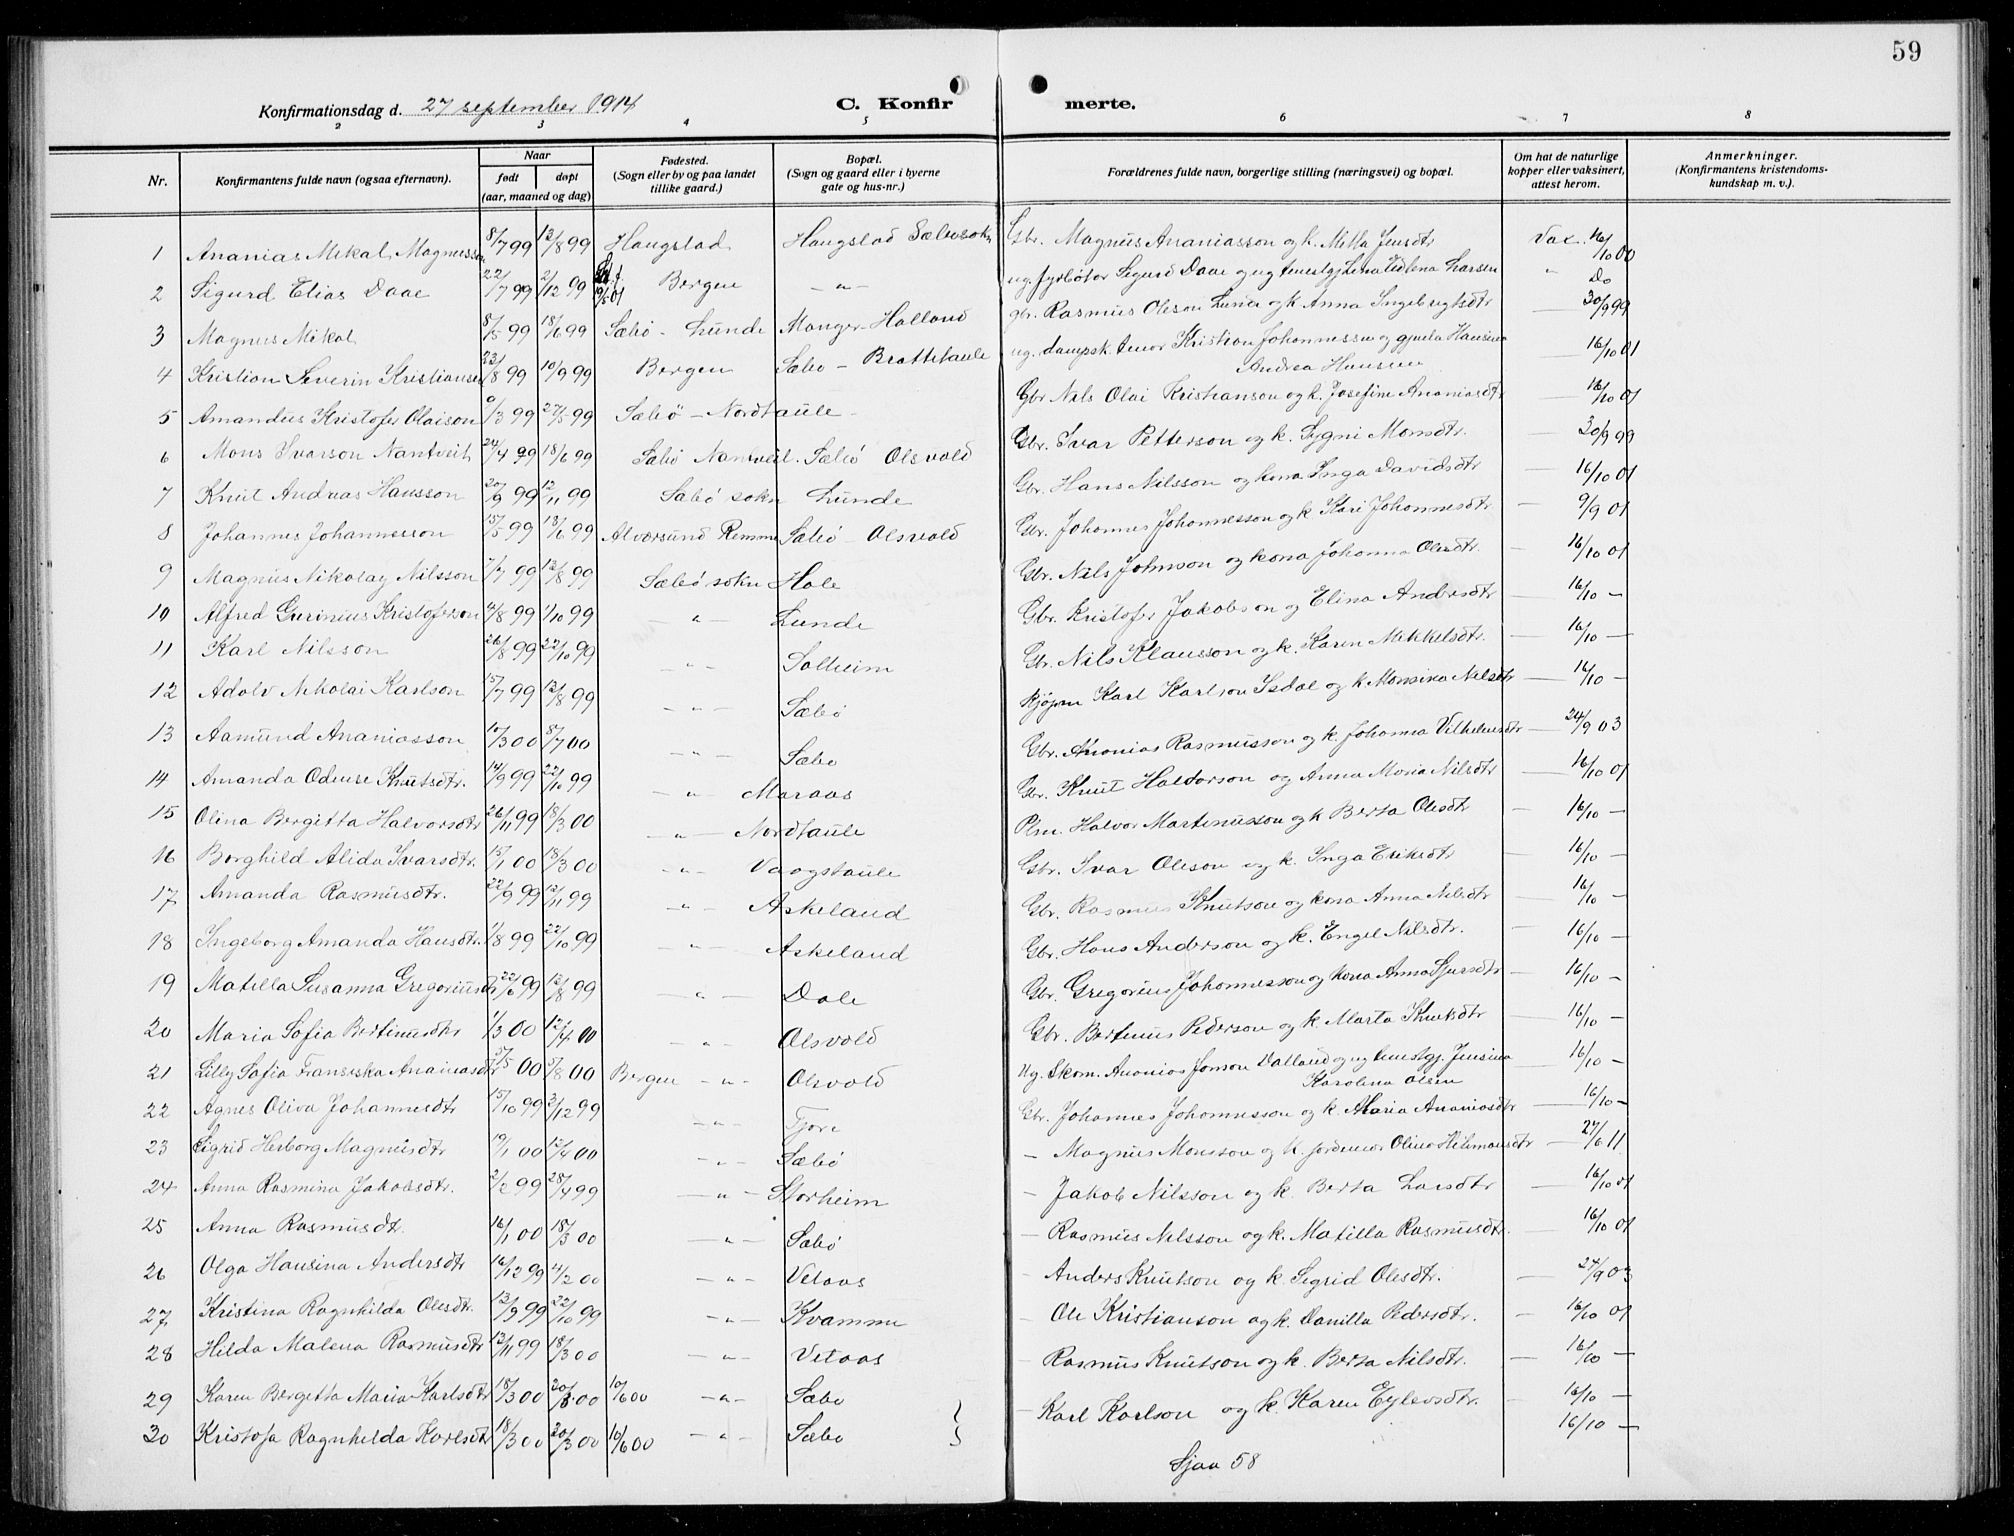 59
Konfirmationsdag d. 27 september 1914
C. Konfirmerte.
2 3 4 5 6 7 8
Nr.
Konfirmantens fulde navn (ogsaa efternavn).
Naar
født døpt
(aar, maaned og dag)
Fødested.
(Sogn eller by og paa landet
tillike gaard.)
Bopæl.
(Sogn og gaard eller i byerne
gate og hus-nr.)
Forældrenes fulde navn, borgerlige stilling (næringsvei) og bopæl.
Om hat de naturlige
kopper eller vaksinert,
attest herom.
Anmerkninger.
(Konfirmantens kristendoms-
kundskap m. v.).
1 Ananias Mikal Magnusson 8/7 99 13/8 99 Haugstad Haugstad Sæbøsokn Gbr. Magnus Ananiasson og k. Metta Jensdtr Vax. 16/10 00
2 Sigurd Elias Daae 22/7 99 2/12 99 Bergen -"- ug. fyrbøter Sigurd Daae og ug tenestgj. Larsen " Do
3 Magnus Mikal 8/5 99 18/6 99 Sæbø - Lunde Manger - Holland gbr. Rasmus Oleson Lunde og k. Anna Ingebrigtsdtr — 30/9 99
4 Kristian Severin Kristiansen 23/8 99 10/9 99 Bergen Sæbø - Brattetaule ug. dampsk. Kristian Johannessen og gjenta Hansina
Andrea Hansen — 16/10 01
5 Amandus Kristofer Olaison /3 99 27/5 99 Sæbø - Nordtaule - Gbr Nils Olai Kristianson og k. Josefine Ananiasdtr — 16/10 01
6 Mons Ivarson Nantveit 24/4 99 18/6 99 Sæbø Nantveit. Sæbø Olsvold Gbr. Ivar Petterson og k. Sygni Monsdtr. — 30/9 99
7 Knut Andreas Hansson 20/9 99 12/11 99 Sæbø sokn Lunde Gbr. Hans Nilsson og kona Inga Davidsdtr — 16/10 01
8 Johannes Johannesson 15/5 99 18/6 99 Alversund Remme Sæbø - Olsvold Gbr. Johannes Johannesson og k Kari Johannesdtr — 9/9 01
9 Magnus Nikolay Nilsson 7/7 99 13/8 99 Sæbø sokn Hole Gbr. Nils Johnson og kona Johanna Olesdtr. — 16/10 01
10 Alfred Gurinius Kristoferson 4/8 99 1/10 99 — " — Lunde Gbr. Kristofer Jakobson og Elina Andersdtr — 16/10 -
11 Karl Nilsson 26/8 99 22/10 99 - " - Solheim Gbr. Nils Klausson og k. Karen Mikkelsdtr. — 16/10 —
12 Adolv Nikolai Karlson 15/7 99 13/8 99 - " - Sæbø Karl Karlson Isdal og k Monsina Nilsdtr — 16/10 -
13 Aamund Ananiasson 10/3 00 8/7 00 - " - Sæbø Gbr. Ananias Rasmusson og k. Johanna Vilhelmsdtr — 24/9 03
14 Amanda Oduse Knutsdtr. 14/9 99 22/10 99 - " - Maraas Gbr. Knut Haldorson og Anna Maria Nilsdtr — 16/10 01
15 Olina Bergitta Halvorsdtr 26/11 99 18/3 00 - " - Nordtaule Plm. Halvor Martinusson og k Berta Olesdtr — 16/10 —
16 Borghild Alida Ivarsdtr. 15/1 00 18/3 00 - " - Vaagstaule Gbr. Ivar Oleson og k. Inga Eriksdtr — 16/10 —
17 Amanda Rasmusdtr. 22/9 99 12/11 99 - " - Askeland Gbr. Rasmus Knutson og kona Anna Nilsdtr — 16/10 —
18 Ingeborg Amanda Hansdtr. 1/8 99 22/10 99 - " - Askeland Gbr. Hans Anderson og k. Engel Nilsdtr. — 16/10 —
19 Matilla Susanna Gregoriusdtr 22/6 99 13/8 99 — " — Dale Gbr. Gregorius Johannesson og kona Anna Sjursdtr — 16/10 -
20 Maria Sofia Bertinusdtr 1/3 00 12/4 00 - " - Olsvold Gbr. Bertinus Pederson og k. Marta Knutsdtr — 16/10 —
21 Lilly Sofia Fransiska Ananiasdtr 5/5 00 5/8 00 Bergen - " - Olsvold Ug. Skom. Ananias Jonson Valland og ug tenestgj. Jensina
Karolina Olsen — 16/10 —
22 Agnes Oliva Johannesdtr 15/10 99 3/12 99 - " - Fjore Gbr. Johannes Johannesson og k. Maria Ananiasdtr — 16/10 -
23 Sigrid Herborg Magnusdtr 19/1 00 12/4 00 - " - Sæbø - Magnus Monsson og k. jordmor Olina Hilmarsdtr — 27/6 11
24 Anna Rasmina Jakobsdtr. 2/2 99 28/4 99 — " — Storheim - Jakob Nilsson og k. Berta Larsdtr — 16/10 01
25 Anna Rasmusdtr. 16/1 00 18/3 00 - " - Sæbø - Rasmus Nilsson og k. Matilla Rasmusdtr. — 16/10 01
26 Olga Hansina Andersdtr 16/12 99 4/2 00 — " — Vetaas - Anders Knutson og k. Sigrid Olesdtr. — 24/9 03
27 Kristina Ragnhilda Olesdtr. 13/9 99 22/10 99 - " - Kvamme - Ole Kristianson og k. Danilla Pedersdtr. — 16/10 01
28 Hilda Malena Rasmusdtr 13/11 99 18/3 00 - " - Vetaas - Rasmus Knutson og k. Berta Nilsdtr. — 16/10 —
29 Karen Bergetta Maria Karlsdtr 18/3 00 20/3 00 10/6 00 - " - Sæbø - Karl Karlson og k. Karen Eylevsdtr. — 16/10 —
30 Kristofa Ragnhilda Karlsdtr 18/3 00 20/3 00 10/6 00 - " - Sæbø 16/10 —
Sjaa 58